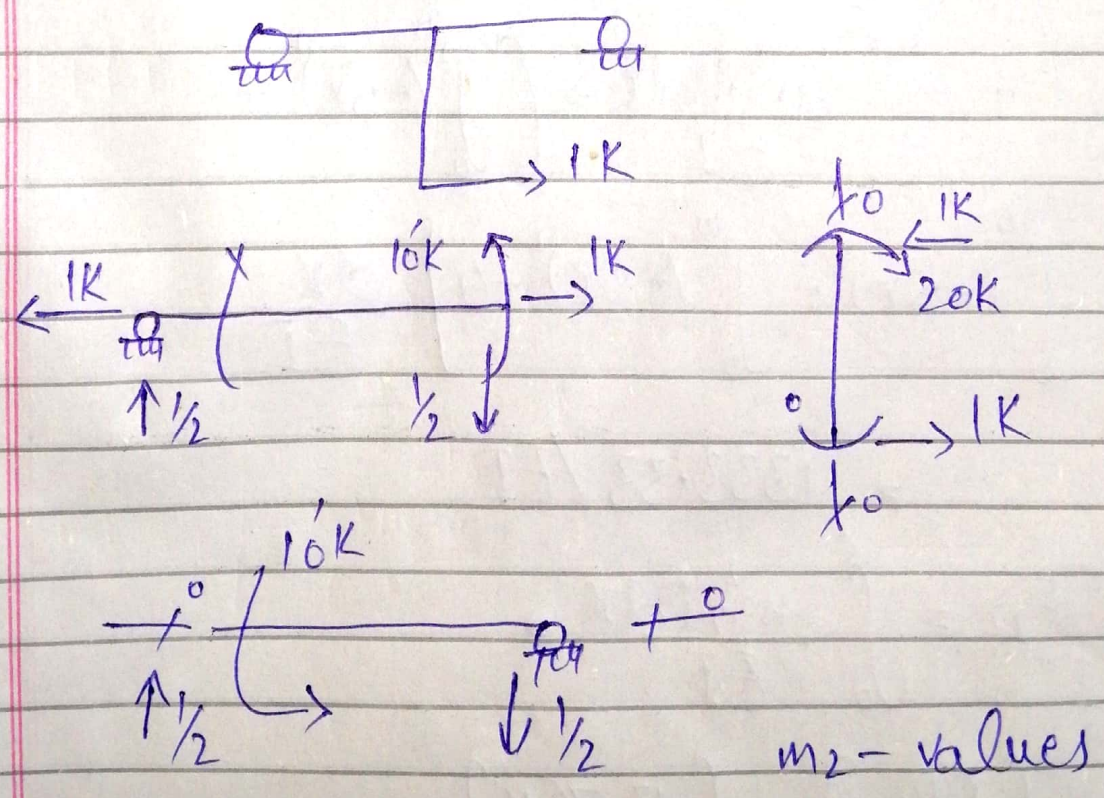 1K
0
1K
20K
1K
10'K
1K
1/2
1/2
0
1K
0
10'K
0
0
1/2
1/2
m2 - values